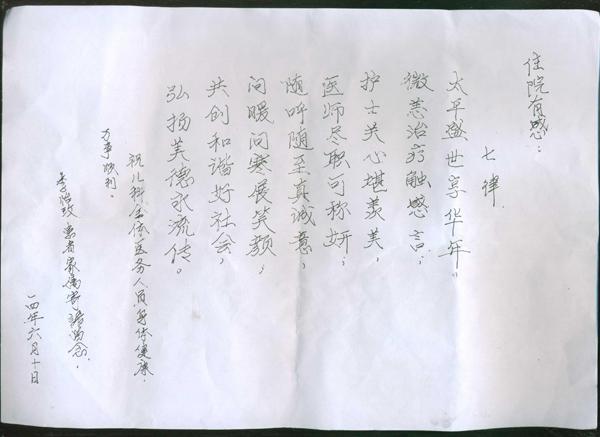 住院有感：
七律
太平盛世享华年。
微恙治疗触感言，
护士关心堪羡美，
医师尽职可称妍；
随呼随至真诚意，
问暖问寒展笑颜，
共创和谐好社会，
弘扬美德永流传。
祝儿科全体医务人员身体健康，
万事顺利。
李怡玫 患者家属寄语留念，
一四年六月十日